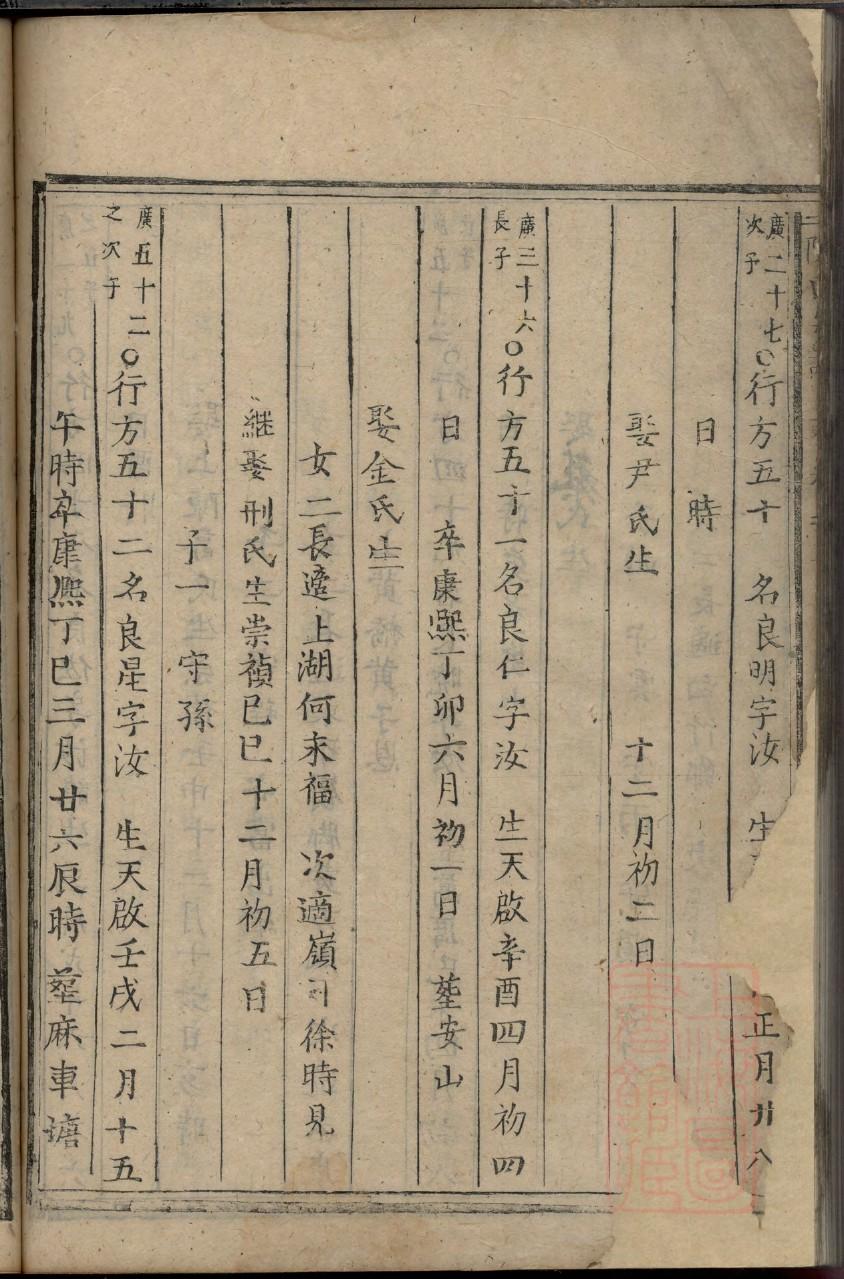 廣二十七次子○行方五十 名良明字汝 生 正月廿八
日 時
娶尹氏生 十二月初二日
廣三十六長子○行方五十一名良仁字汝 生天啟辛酉四月初四
日 卒康熙丁卯六月初一日 塟安山
娶金氏生
女二長適上湖何來福 次適嶺 徐時見
継娶刑氏生崇禎己巳十二月初五日
子一 守孫
廣五十二之次子○行方五十二名良星字汝 生天啟壬戌二月十五
午時卒康熙丁巳三月廿六辰時 塟麻車塘